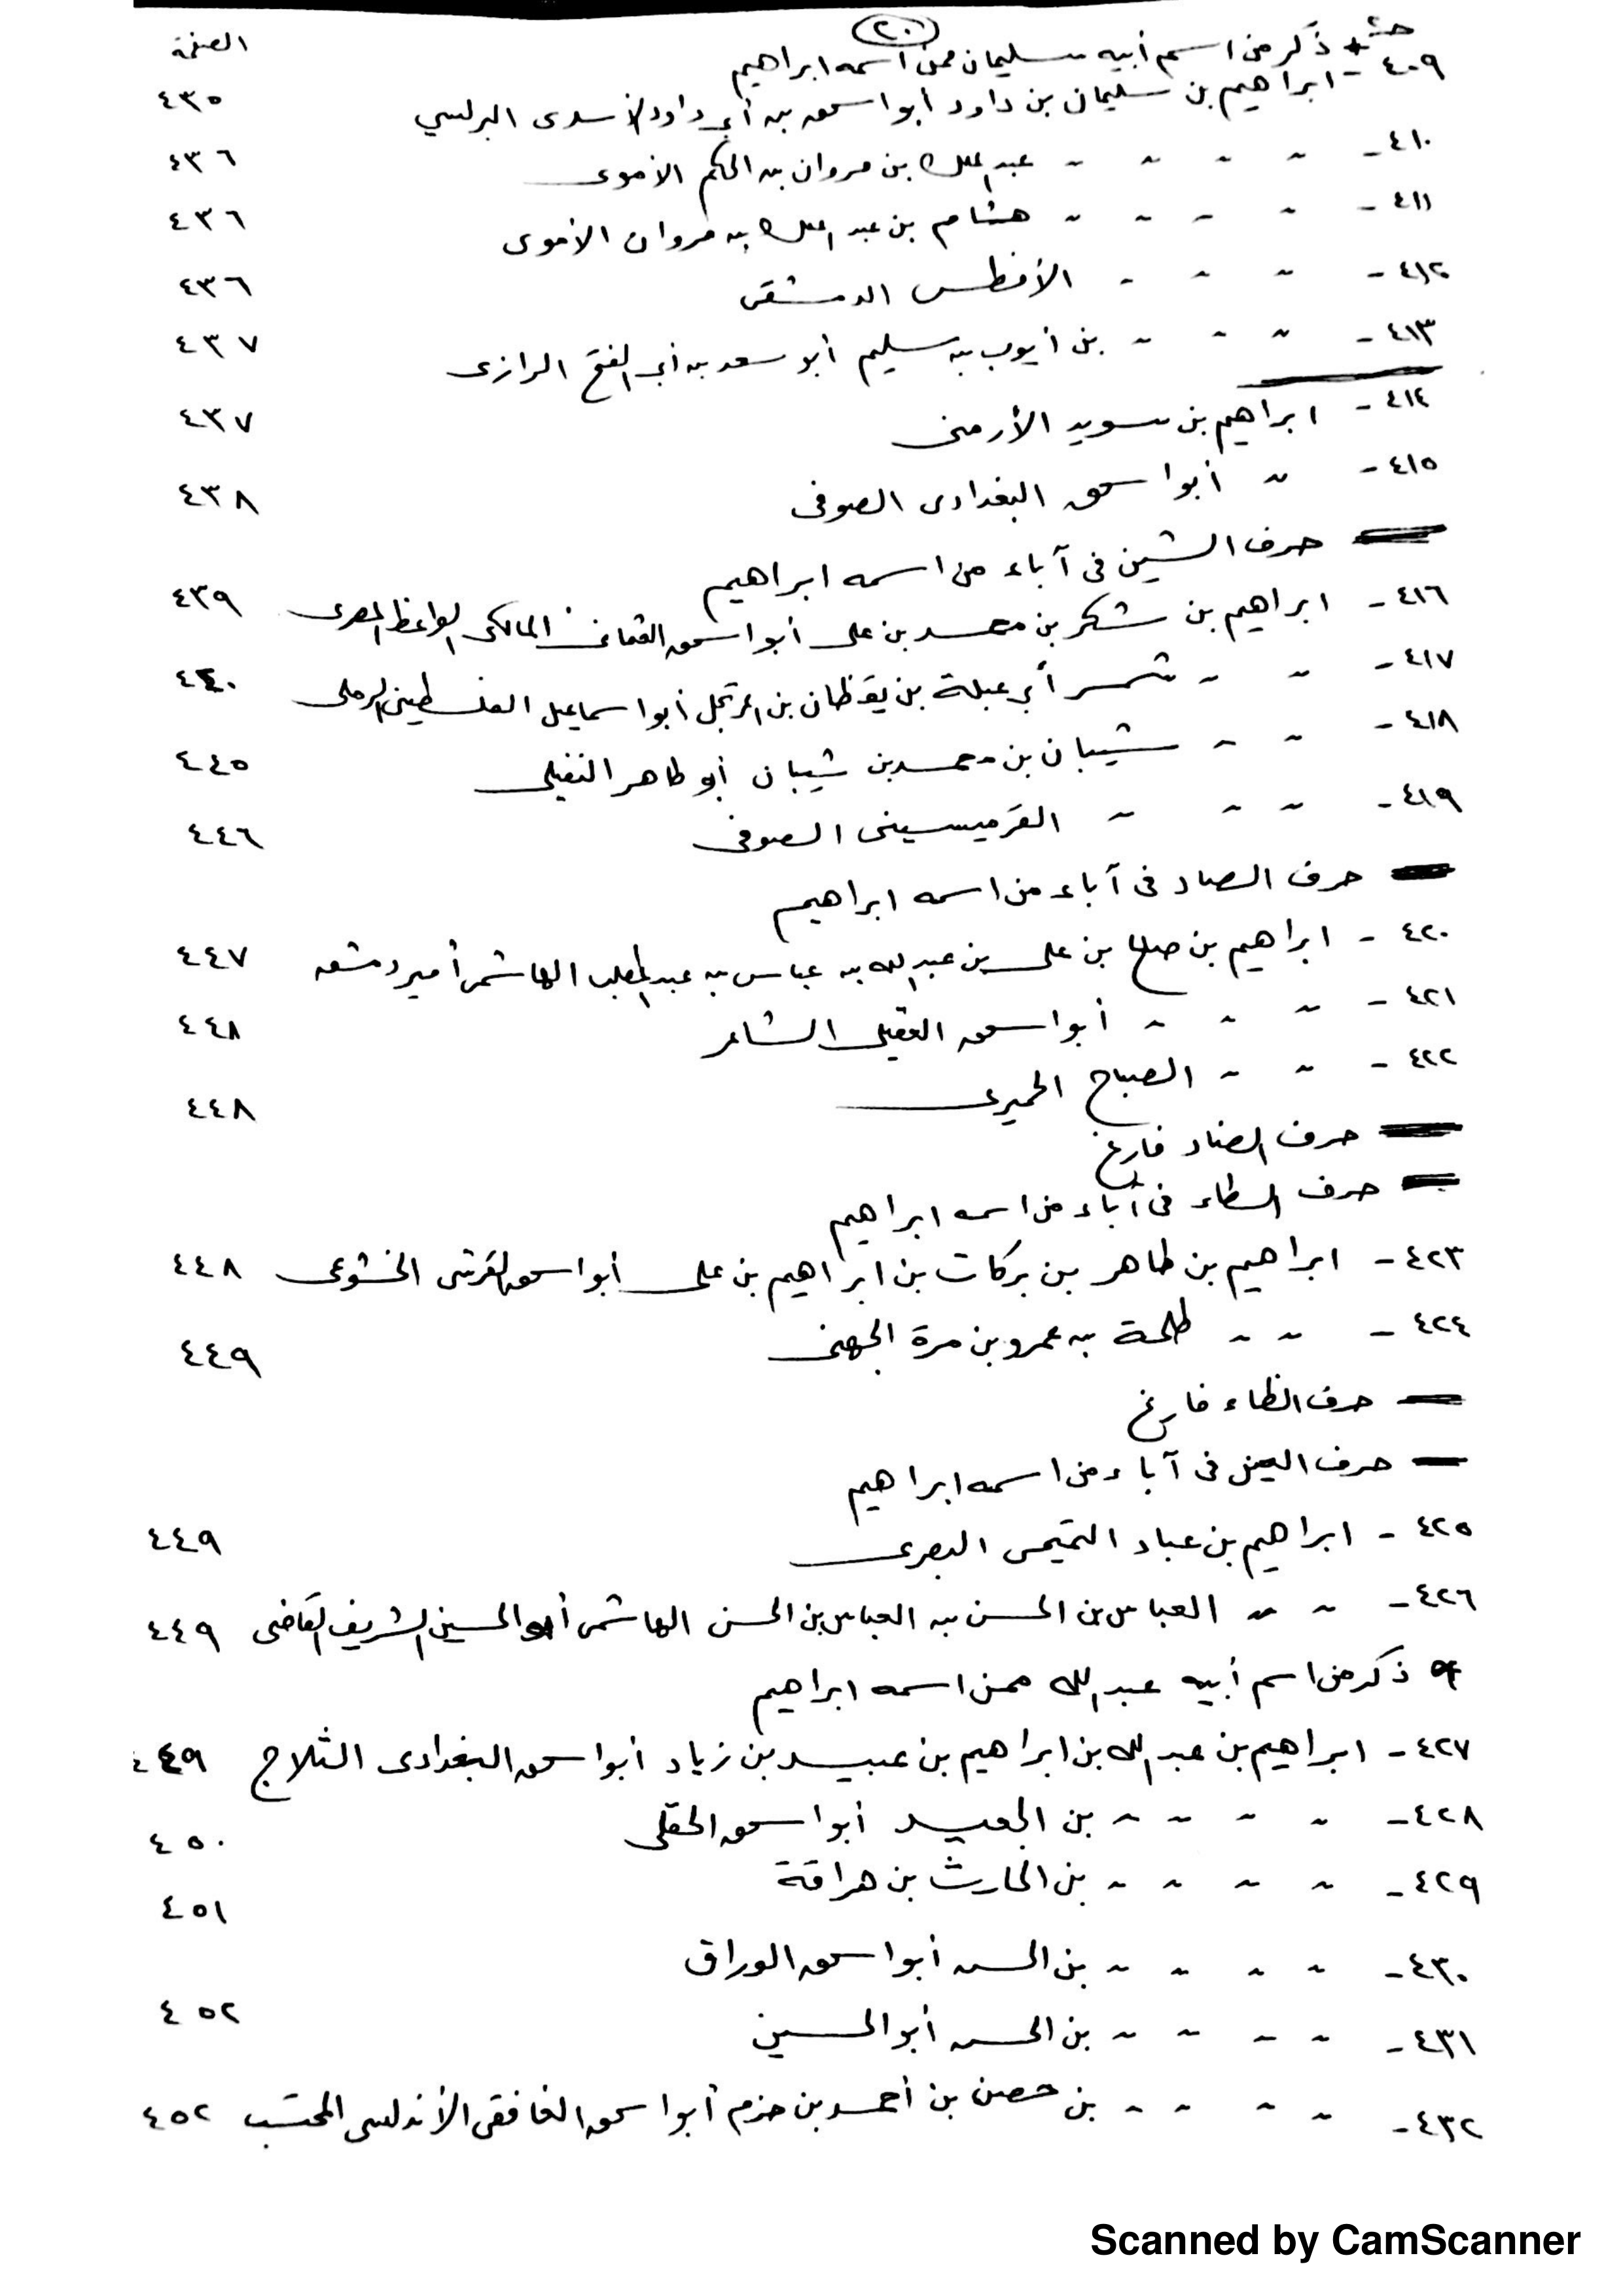 (٢٠)
الصفحة
ذكر من اسم أبيه سليمان ممن اسمه ابراهيم
٤٠٩ - ابراهيم بن سليمان بن داود أبو اسحق بن أبي داود الأسدى البرلسي ٤٣٥
٤١٠ - ~ ~ ~ ~ عبد الملك بن مروان بن الحكم الأموى ٤٣٦
٤١١ - ~ ~ ~ ~ هشام بن عبد الملك بن مروان الأموى ٤٣٦
٤١٢ - ~ ~ ~ الأفطس الدمشقى ٤٣٦
٤١٣ - ~ ~ ~ بن أيوب بن سليم أبو سعد بن أبي الفتح الرازى ٤٣٧
٤١٤ - ابراهيم بن سويد الأرمنى ٤٣٧
٤١٥ - ~ أبو اسحق البغدادى الصوفى ٤٣٨
حرف الشين فى آباء من اسمه ابراهيم
٤١٦ - ابراهيم بن شكر بن محمد بن على أبو اسحق العثمانى المالكى الواعظ المصرى ٤٣٩
٤١٧ - ~ ~ شمر أبي عبلة بن يقظان بن المرتحل أبو اسماعيل الفلسطينى الرملى ٤٤٠
٤١٨ - ~ ~ شيبان بن محمد بن شيبان أبو طاهر النفيلى ٤٤٥
٤١٩ - ~ ~ ~ القرميسينى الصوفى ٤٤٦
حرف الصاد فى آباء من اسمه ابراهيم
٤٢٠ - ابراهيم بن صالح بن على بن عبد الله بن عباس بن عبد المطلب الهاشمى أمير دمشق ٤٤٧
٤٢١ - ~ ~ ~ أبو اسحق العقيلى الشاعر ٤٤٨
٤٢٢ - ~ ~ الصباح الحميرى ٤٤٨
حرف الضاد فارغ
حرف الطاء فى آباء من اسمه ابراهيم
٤٢٣ - ابراهيم بن طاهر بن بركات بن ابراهيم بن على أبو اسحق القرشى الخشوعى ٤٤٨
٤٢٤ - ~ ~ طلحة بن عمرو بن مرة الجهنى ٤٤٩
حرف الظاء فارغ
حرف العين فى آباء من اسمه ابراهيم
٤٢٥ - ابراهيم بن عباد التميمى البصرى ٤٤٩
٤٢٦ - ~ ~ العباس بن الحسن بن العباس بن الحسن الهاشمى أبو الحسين الشريف القاضى ٤٤٩
ذكر من اسم أبيه عبد الله ممن اسمه ابراهيم
٤٢٧ - ابراهيم بن عبد الله بن ابراهيم بن عبيد بن زياد أبو اسحق البغدادى الثلاج ٤٤٩
٤٢٨ - ~ ~ ~ ~ بن الجعيد أبو اسحق الحقلى ٤٥٠
٤٢٩ - ~ ~ ~ ~ بن الحارث بن هراقة ٤٥١
٤٣٠ - ~ ~ ~ ~ بن الحسن أبو اسحق الوراق
٤٣١ - ~ ~ ~ ~ بن الحسن أبو الحسين ٤٥٢
٤٣٢ - ~ ~ ~ ~ بن حصن بن أحمد بن حزم أبو اسحق الغافقى الأندلسى المحتسب ٤٥٢
Scanned by CamScanner